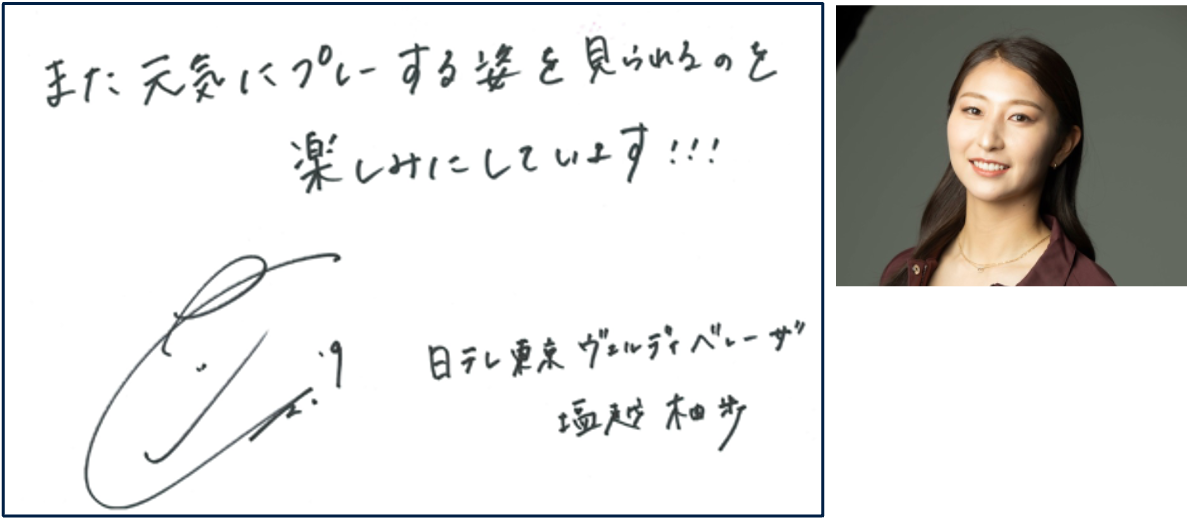 また元気にプレーする姿を見られるのを
楽しみにしています!!!
.9
日テレ東京ヴェルディベレーザ
塩越柚歩